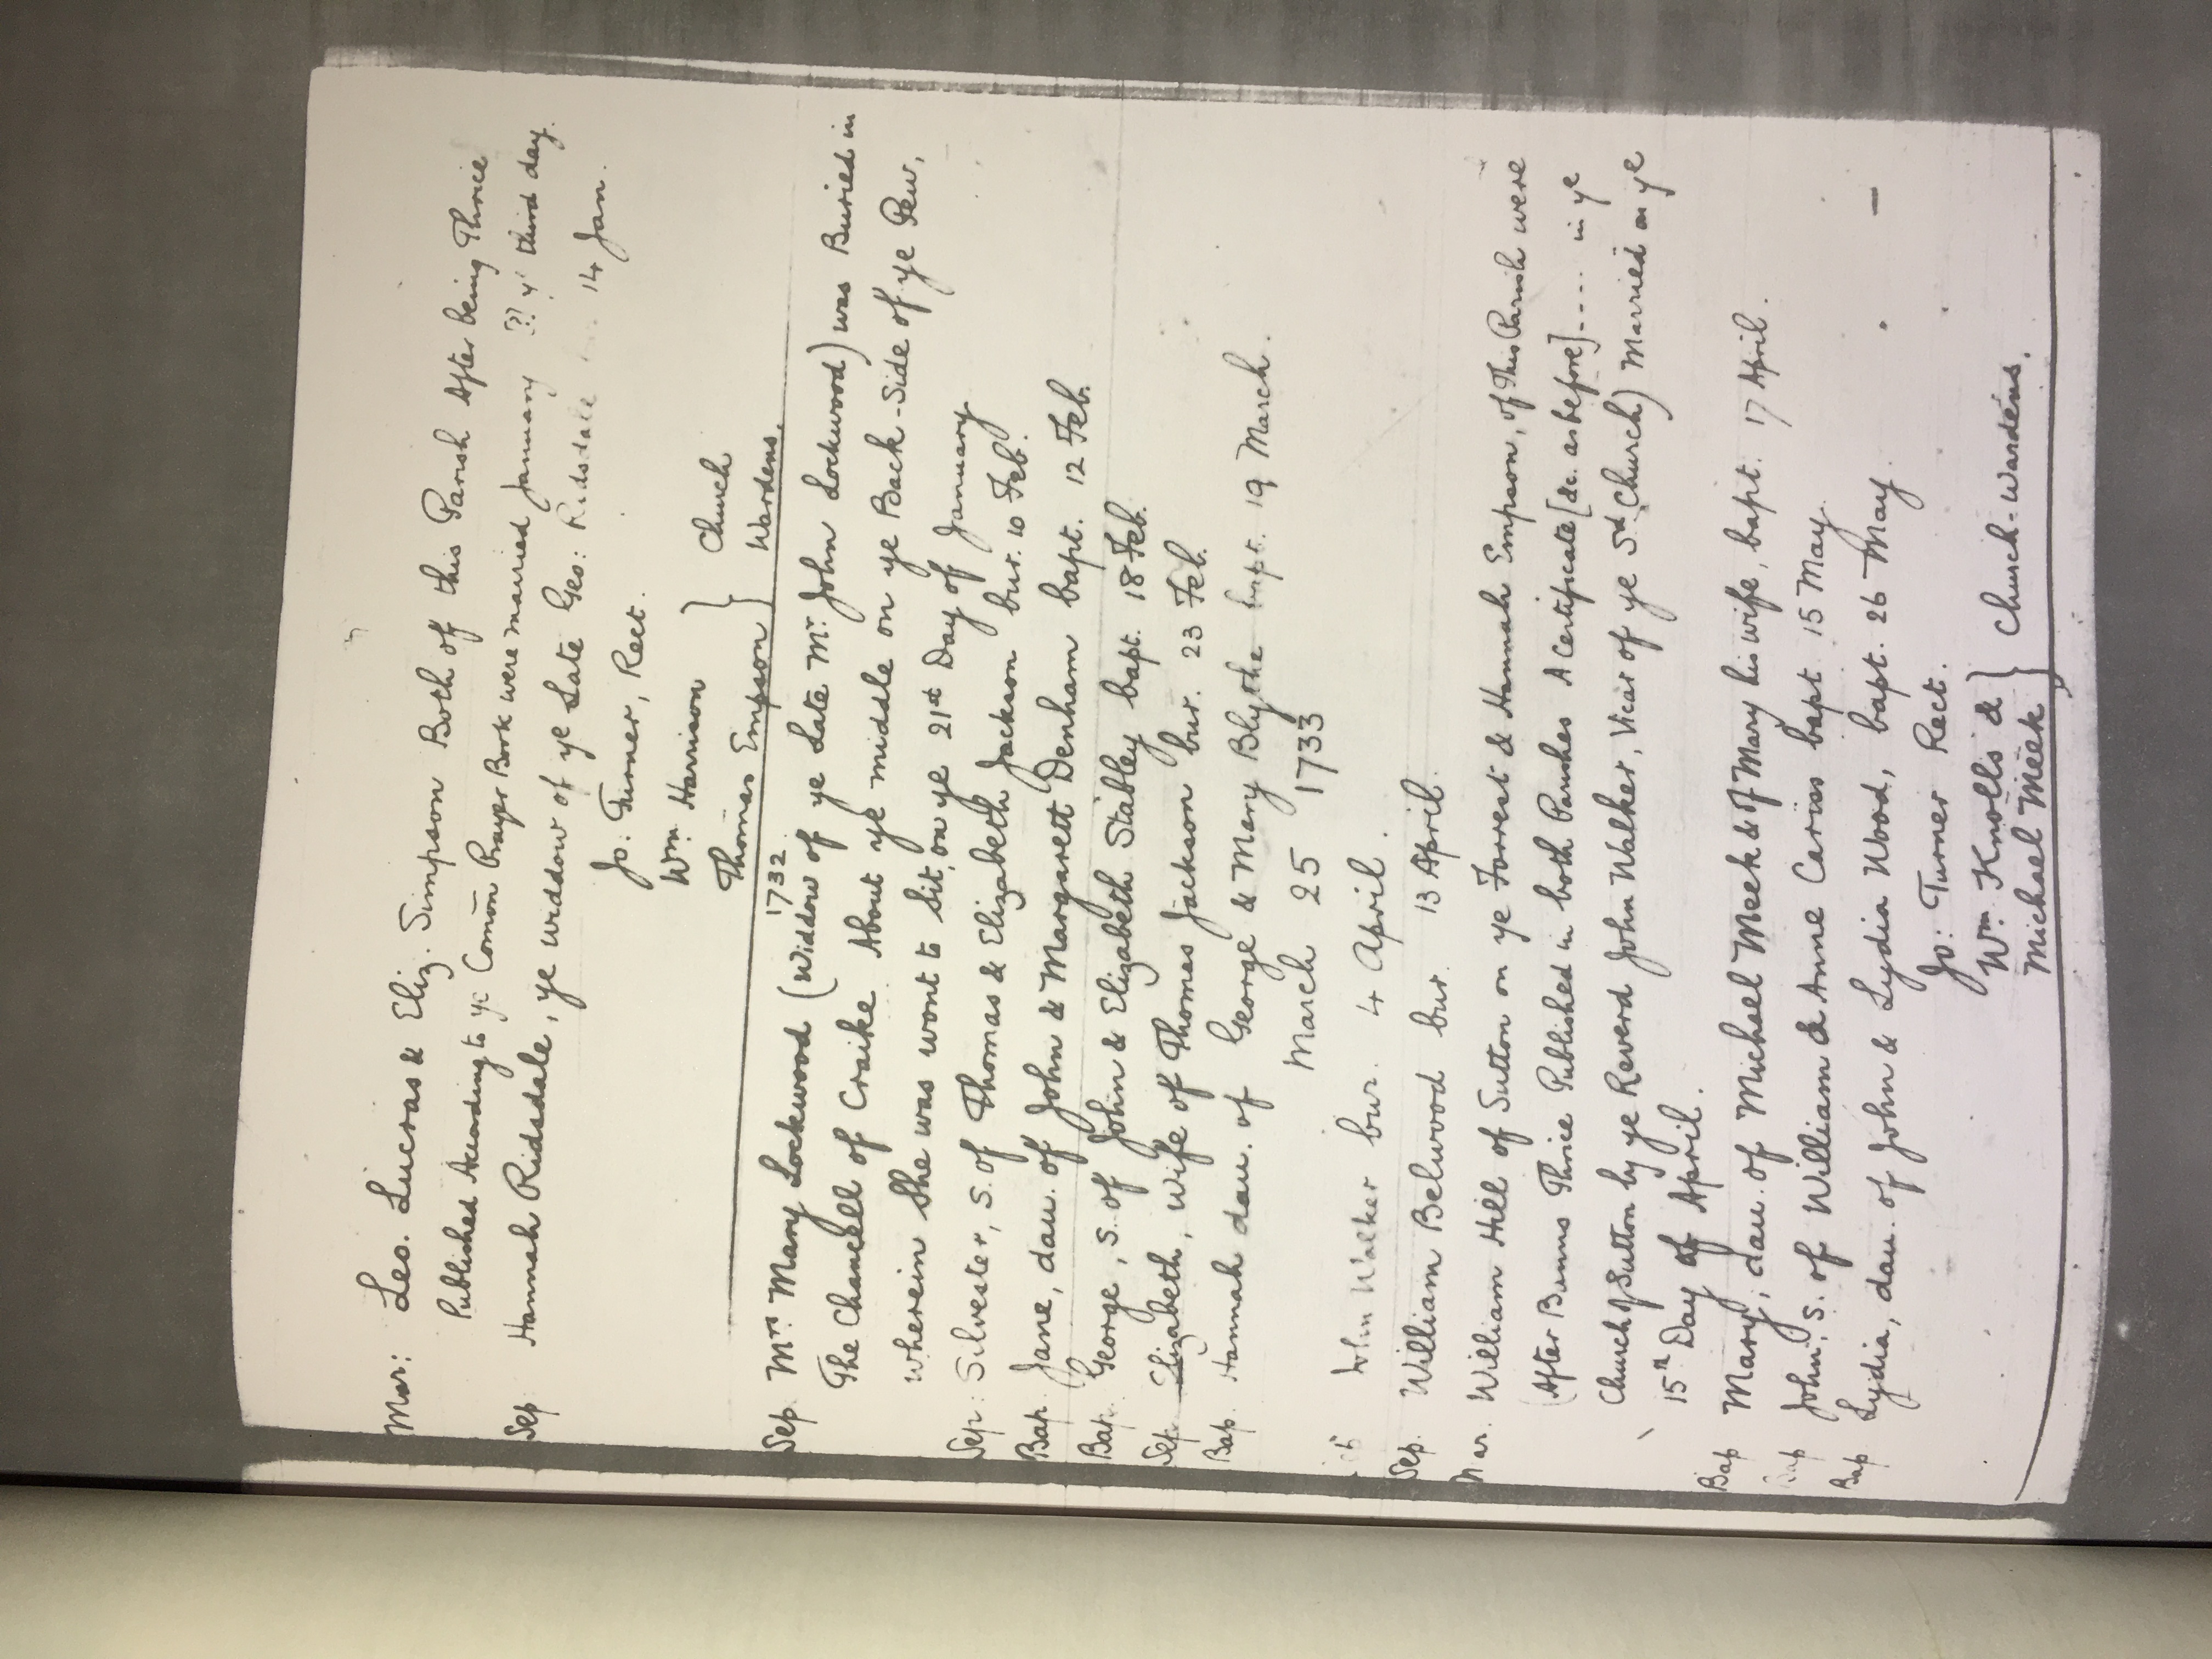 Mar: Leo. Lucras & Eliz. Simpson Both of this Parish After being Thrice
Published According to ye Comōn Prayer Book were married January [?] ye third day.
Sep. Hannah Ridsdale, ye widdow of ye Late Geo: Ridsdale 14 Jan.
Jo: Turner, Rect.
Wm Harrison } Church
Thomas Empson } Wardens.
1732
Sep. Mrs Mary Lockwood (Widdow of ye Late Mr. John Lockwood) was Buried in
The Chancell of Craike About ye middle on ye Back-Side of ye Pew,
wherein She was wont to Sit, on ye 21st Day of January
Sep: Silvester, S. of Thomas & Elizabeth Jackson bur. 10 Feb.
Bap. Jane, dau. of John & Margarett Denham bapt. 12 Feb.
Bap. George, S. of John & Elizabeth Stabley bapt. 18 Feb.
Sep. Elizabeth, wife of Thomas Jackson bur. 23 Feb.
Bap. Hannah dau. of George & Mary Blythe bapt. 19 March.
March 25 1733
John Walker bur. 4 April.
Sep. William Belwood bur. 13 April.
Mar. William Hill of Sutton on ye Forrest & Hannah Empson, of This Parish were
(After Banns Thrice Published in both Parishes A Certificate [&c. as before] .... in ye
Church of Sutton by ye Reverd John Walker, Vicar of ye Sd Church) Married on ye
15th Day of April.
Bap Mary, dau. of Michael Meek & of Mary his wife, bapt. 17 April.
Bap John, S. of William & Anne Cariss bapt. 15 May
Bap Lydia, dau. of John & Lydia Wood, bapt. 26 May.
Jo: Turner Rect.
Wm Knolls & } Church-Wardens.
Michael Meek }